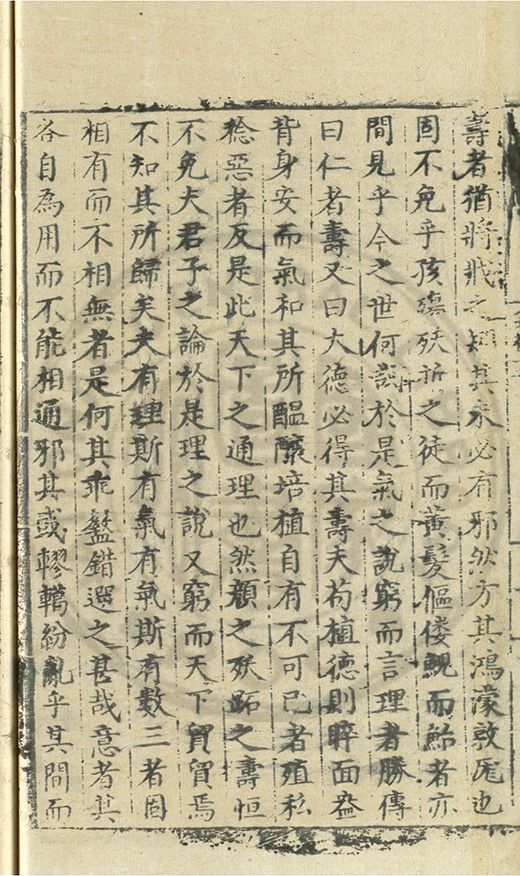 壽者猶將戕之矧其未必有邪然方其鴻濛敦厖也
固不免乎孩殤殀折之徒而黃髮傴僂鯢而鮐者亦
間見乎今之世何哉於是氣之說窮而言理者勝傳
曰仁者壽又曰大德必得其壽夫苟植德則睟面盎
背身安而氣和其所醞釀培植自有不可已者殖私
稔惡者反是此天下之通理也然顏之殀跖之壽恒
不免夫君子之論於是理之說又窮而天下貿貿焉
不知其所歸矣夫有理斯有氣有氣斯有數三者固
相有而不相無者是何其乖盭錯迕之甚哉意者其
各自為用而不能相通邪其或轇轕紛亂乎其間而